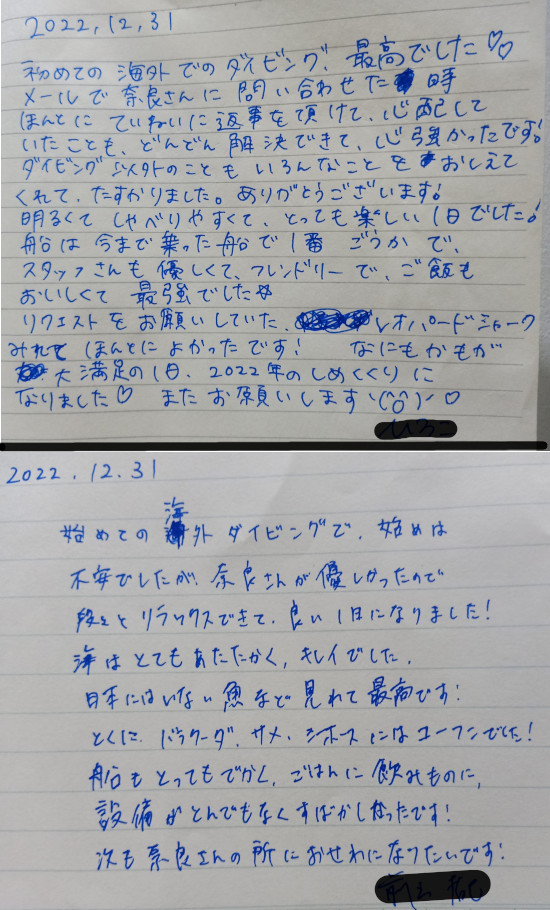 2022,12,31
初めての海外でのダイビング、最高でした♡♡
メールで奈良さんに問い合わせた時
ほんとにていねいに返事を頂けて、心配して
いたことも、どんどん解決できて、心強かったです!
ダイビング以外のこともいろんなことをおしえて
くれて、たすかりました。ありがとうございます!
明るくてしゃべりやすくて、とっても楽しい1日でした!
船は今まで乗った船で1番ごうかで、
スタッフさんも優しくて、フレンドリーで、ご飯も
おいしくて最強でした☆
リクエストをお願いしていた、レオパードシャーク
みれてほんとによかったです! なにもかもが
大満足の1日、2022年のしめくくりに
なりました♡ またお願いします\(^o^)/♡
2022.12.31
始めての海外ダイビングで、始めは
不安でしたが、奈良さんが優しかったので
段々とリラックスできて、良い1日になりました!
海はとてもあたたかく、キレイでした。
日本にはいない魚など見れて最高です!
とくに、バラクーダ、サメ、シホースにはコーフンでした!
船もとってもでかく、ごはんに飲みものに、
設備がとんでもなくすばらしかったです!
次も奈良さんの所におせわになりたいです!